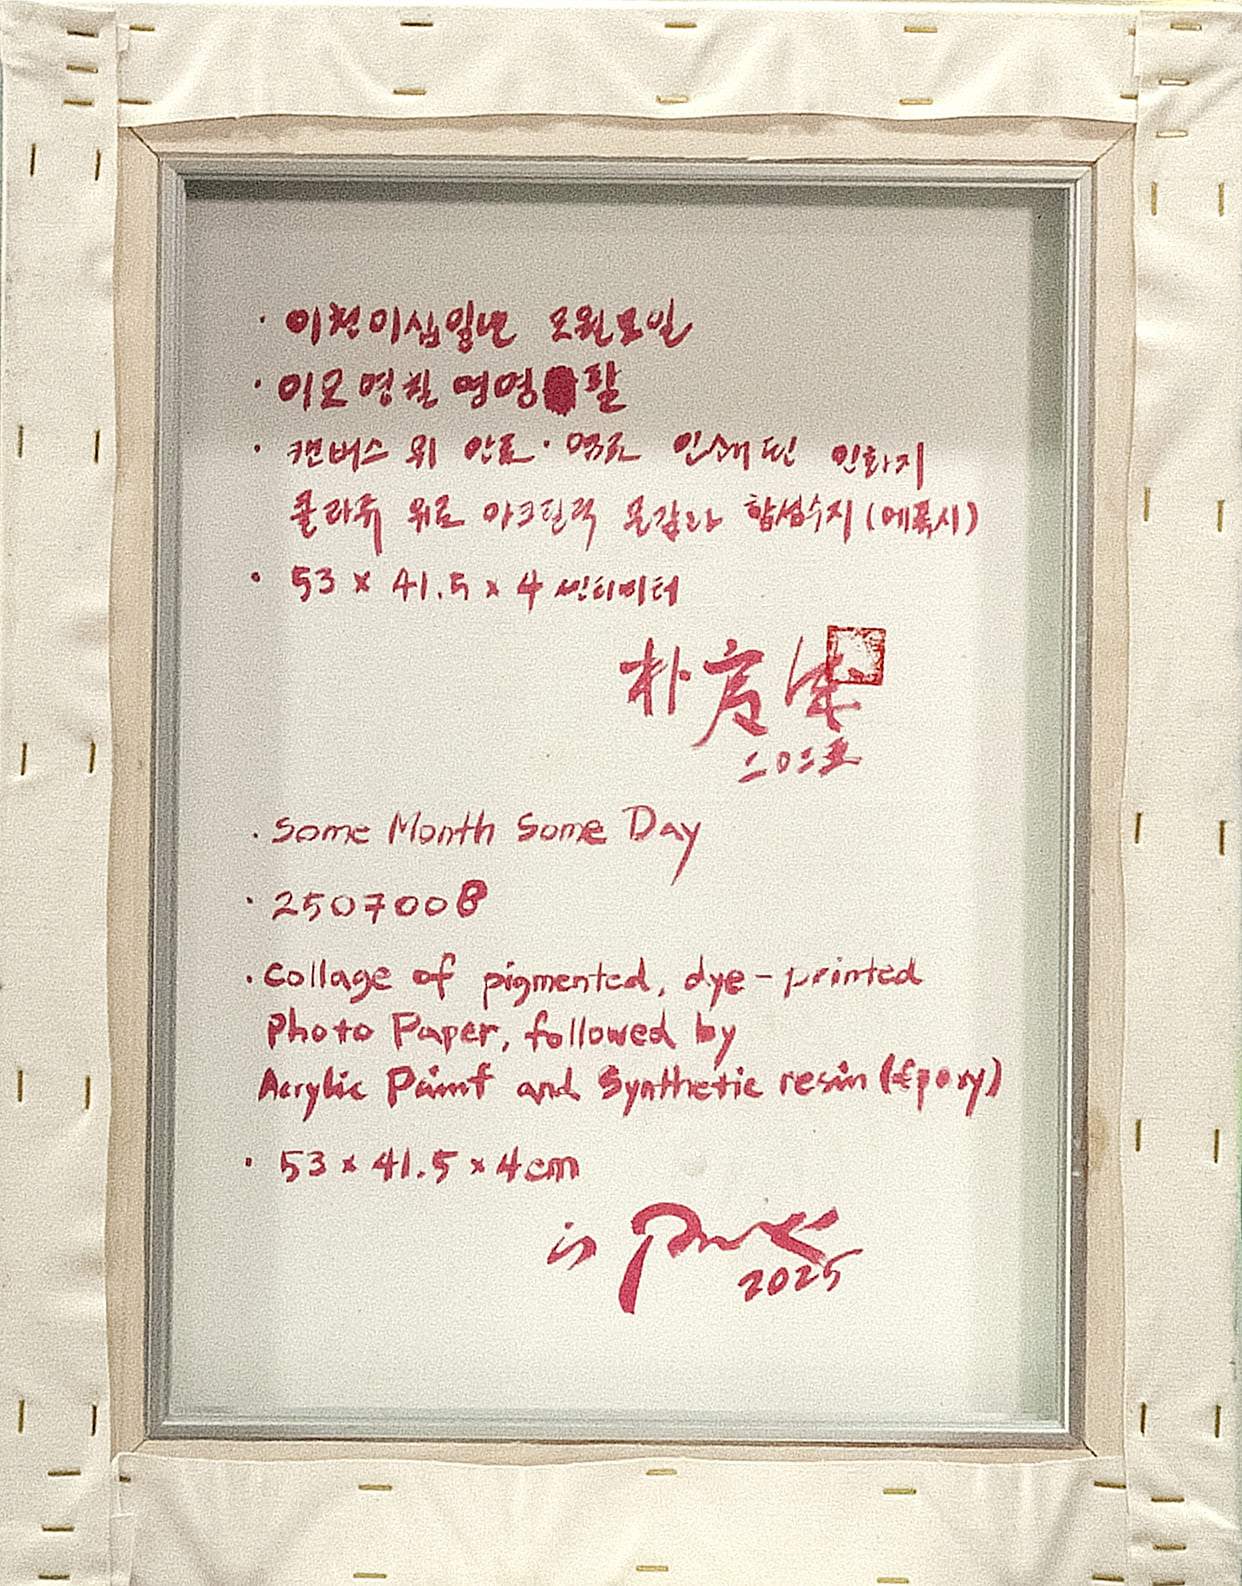 · 이천이십일년 모월모일
· 이오영칠 영영 팔
· 캔버스 위 안료·염료 인쇄된 인화지
콜라쥬 위로 아크릴릭 물감과 합성수지(에폭시)
· 53 x 41.5 x 4 센티미터
朴
二〇二五
· Some Month Some Day
· 2507008
· Collage of pigmented, dye-printed
Photo Paper, followed by
Acrylic Paint and Synthetic resin (Epoxy)
· 53 x 41.5 x 4cm
Park
2025